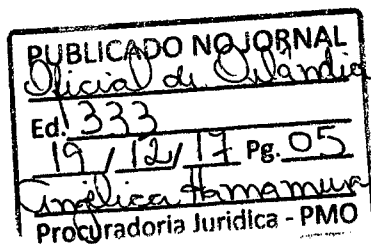 PUBLICADO NO JORNAL
Oficial de Orlândia
Ed. 333
19 / 12 / 17 Pg. 05
Angélica Hamamura
Procuradoria Juridica - PMO